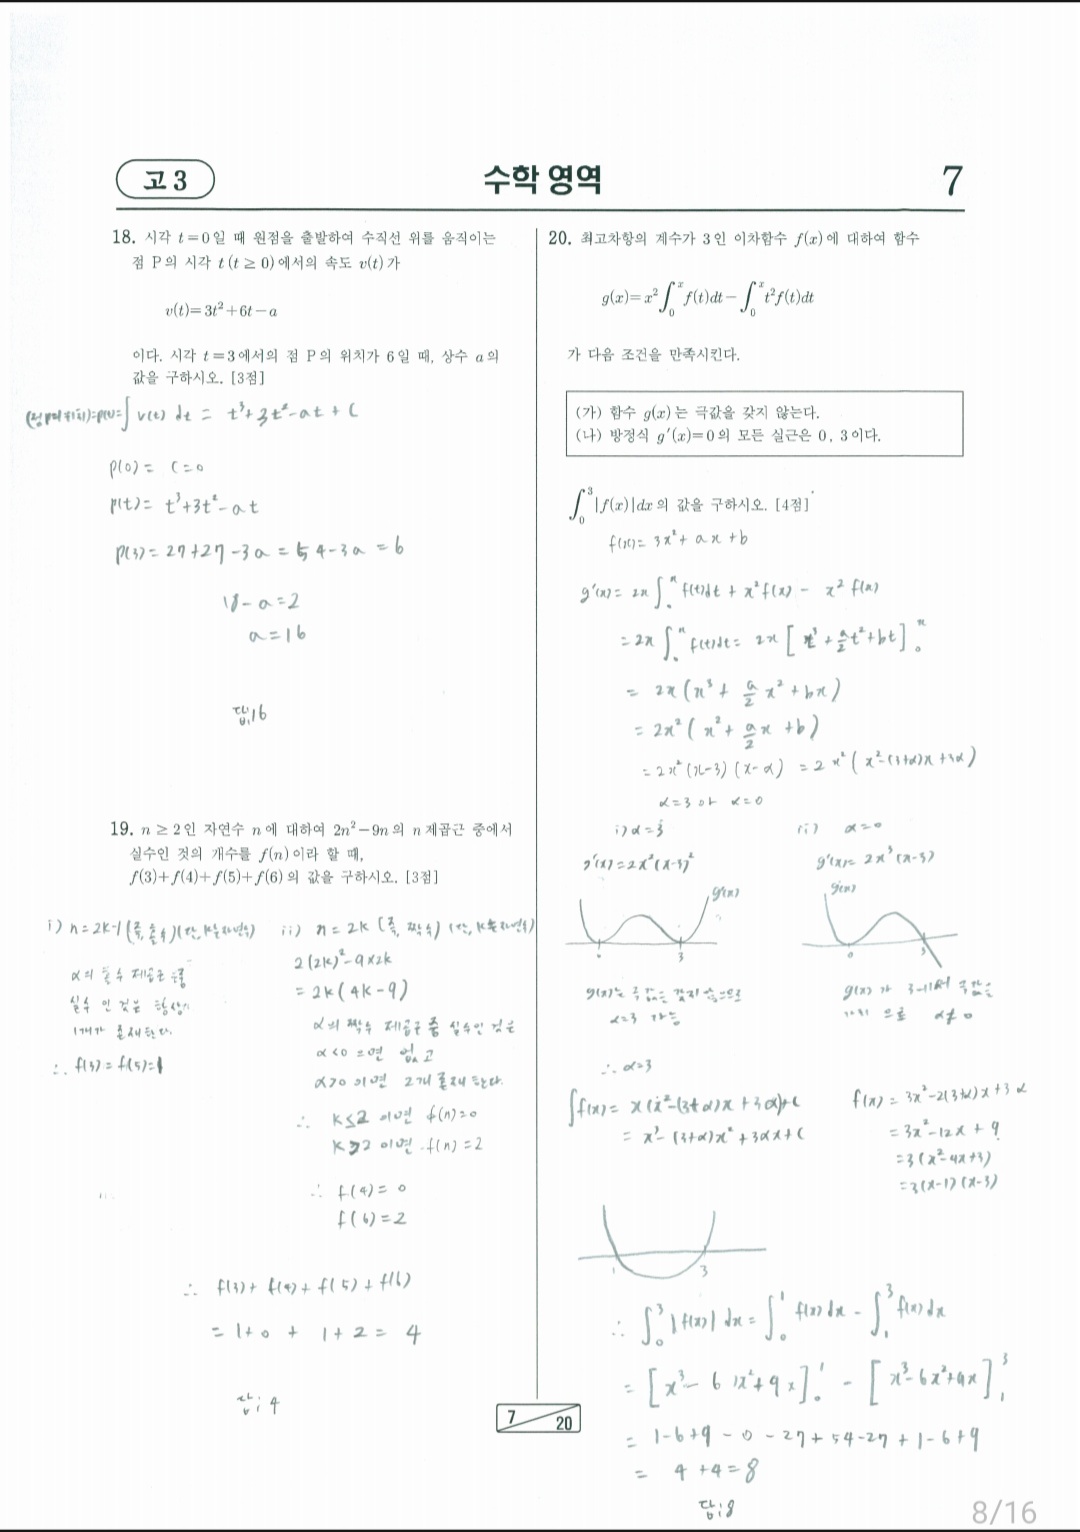 고 3
수학 영역
7
18. 시각 t=0일 때 원점을 출발하여 수직선 위를 움직이는
점 P의 시각 t(t ≥ 0)에서의 속도 v(t)가
v(t)=3t²+6t-a
이다. 시각 t=3에서의 점 P의 위치가 6일 때, 상수 a의
값을 구하시오. [3점]
(점P의 위치)=p(t)=∫v(t) dt = t³+3t²-at+C
p(0)= C=0
p(t)= t³+3t²-at
p(3)=27+27-3a=54-3a=6
18-a=2
a=16
답:16
19. n ≥ 2인 자연수 n에 대하여 2n²-9n의 n제곱근 중에서
실수인 것의 개수를 f(n)이라 할 때,
f(3)+f(4)+f(5)+f(6)의 값을 구하시오. [3점]
i) n=2k-1 (즉, 홀수)(단, k는 자연수)
α의 홀수 제곱근 중
실수 인 것은 항상
1개가 존재한다.
∴ f(3)=f(5)=1
ii) n=2k (즉, 짝수) (단, k는 자연수)
2(2k)²-9×2k
=2k(4k-9)
α의 짝수 제곱근 중 실수인 것은
α<0 으면 없고
α>0 이면 2개 존재한다.
∴ k≤2 이면 f(n)=0
k>2 이면 f(n)=2
∴ f(4)=0
f(6)=2
∴ f(3)+f(4)+f(5)+f(6)
=1+0+1+2=4
답:4
20. 최고차항의 계수가 3인 이차함수 f(x)에 대하여 함수
g(x)=x²∫₀ˣf(t)dt-∫₀ˣt²f(t)dt
가 다음 조건을 만족시킨다.
(가) 함수 g(x)는 극값을 갖지 않는다.
(나) 방정식 g′(x)=0의 모든 실근은 0, 3이다.
∫₀³|f(x)|dx의 값을 구하시오. [4점]
f(x)=3x²+ax+b
g'(x)=2x∫₀ˣf(t)dt+x²f(x)-x²f(x)
=2x∫₀ˣf(t)dt=2x[t³+a/2t²+bt]₀ˣ
=2x(x³+a/2x²+bx)
=2x²(x²+a/2x+b)
=2x²(x-3)(x-α) =2x²(x²-(3+α)x+3α)
α=3 or α=0
i) α=3
g'(x)=2x²(x-3)²
g'(x)
0 3
g(x)는 극값을 갖지 않으므로
α=3 가능
ii) α=0
g'(x)=2x³(x-3)
g'(x)
0 3
g(x)가 3에서 극값을
으로 α≠0
∴ α=3
∫f(x)=x(x²-(3+α)x+3α)+C
=x³-(3+α)x²+3αx+C
f(x)=3x²-2(3+α)x+3α
=3x²-12x+9
=3(x²-4x+3)
=3(x-1)(x-3)
1 3
∴ ∫₀³|f(x)|dx=∫₀¹f(x)dx-∫₁³f(x)dx
=[x³-6x²+9x]₀¹-[x³-6x²+9x]₁³
=1-6+9-0-27+54-27+1-6+9
=4+4=8
답:8
7
20
8/16